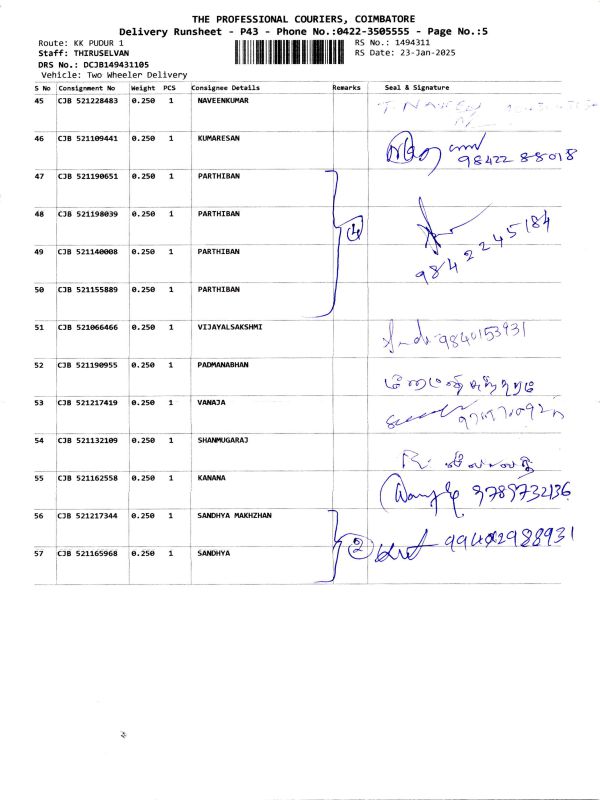 THE PROFESSIONAL COURIERS, COIMBATORE
Delivery Runsheet - P43 - Phone No.:0422-3505555 - Page No.:5
Route: KK PUDUR 1 RS No.: 1494311
Staff: THIRUSELVAN RS Date: 23-Jan-2025
DRS No.: DCJB149431105
Vehicle: Two Wheeler Delivery
S No Consignment No Weight PCS Consignee Details Remarks Seal & Signature
45 CJB 521228483 0.250 1 NAVEENKUMAR
46 CJB 521109441 0.250 1 KUMARESAN
98422 88018
47 CJB 521190651 0.250 1 PARTHIBAN
48 CJB 521198039 0.250 1 PARTHIBAN
4 9842245184
49 CJB 521140008 0.250 1 PARTHIBAN
50 CJB 521155889 0.250 1 PARTHIBAN
51 CJB 521066466 0.250 1 VIJAYALSAKSHMI
9840153931
52 CJB 521190955 0.250 1 PADMANABHAN
53 CJB 521217419 0.250 1 VANAJA
54 CJB 521132109 0.250 1 SHANMUGARAJ
55 CJB 521162558 0.250 1 KANANA
9789732136
56 CJB 521217344 0.250 1 SANDHYA MAKHZHAN
2
57 CJB 521165968 0.250 1 SANDHYA